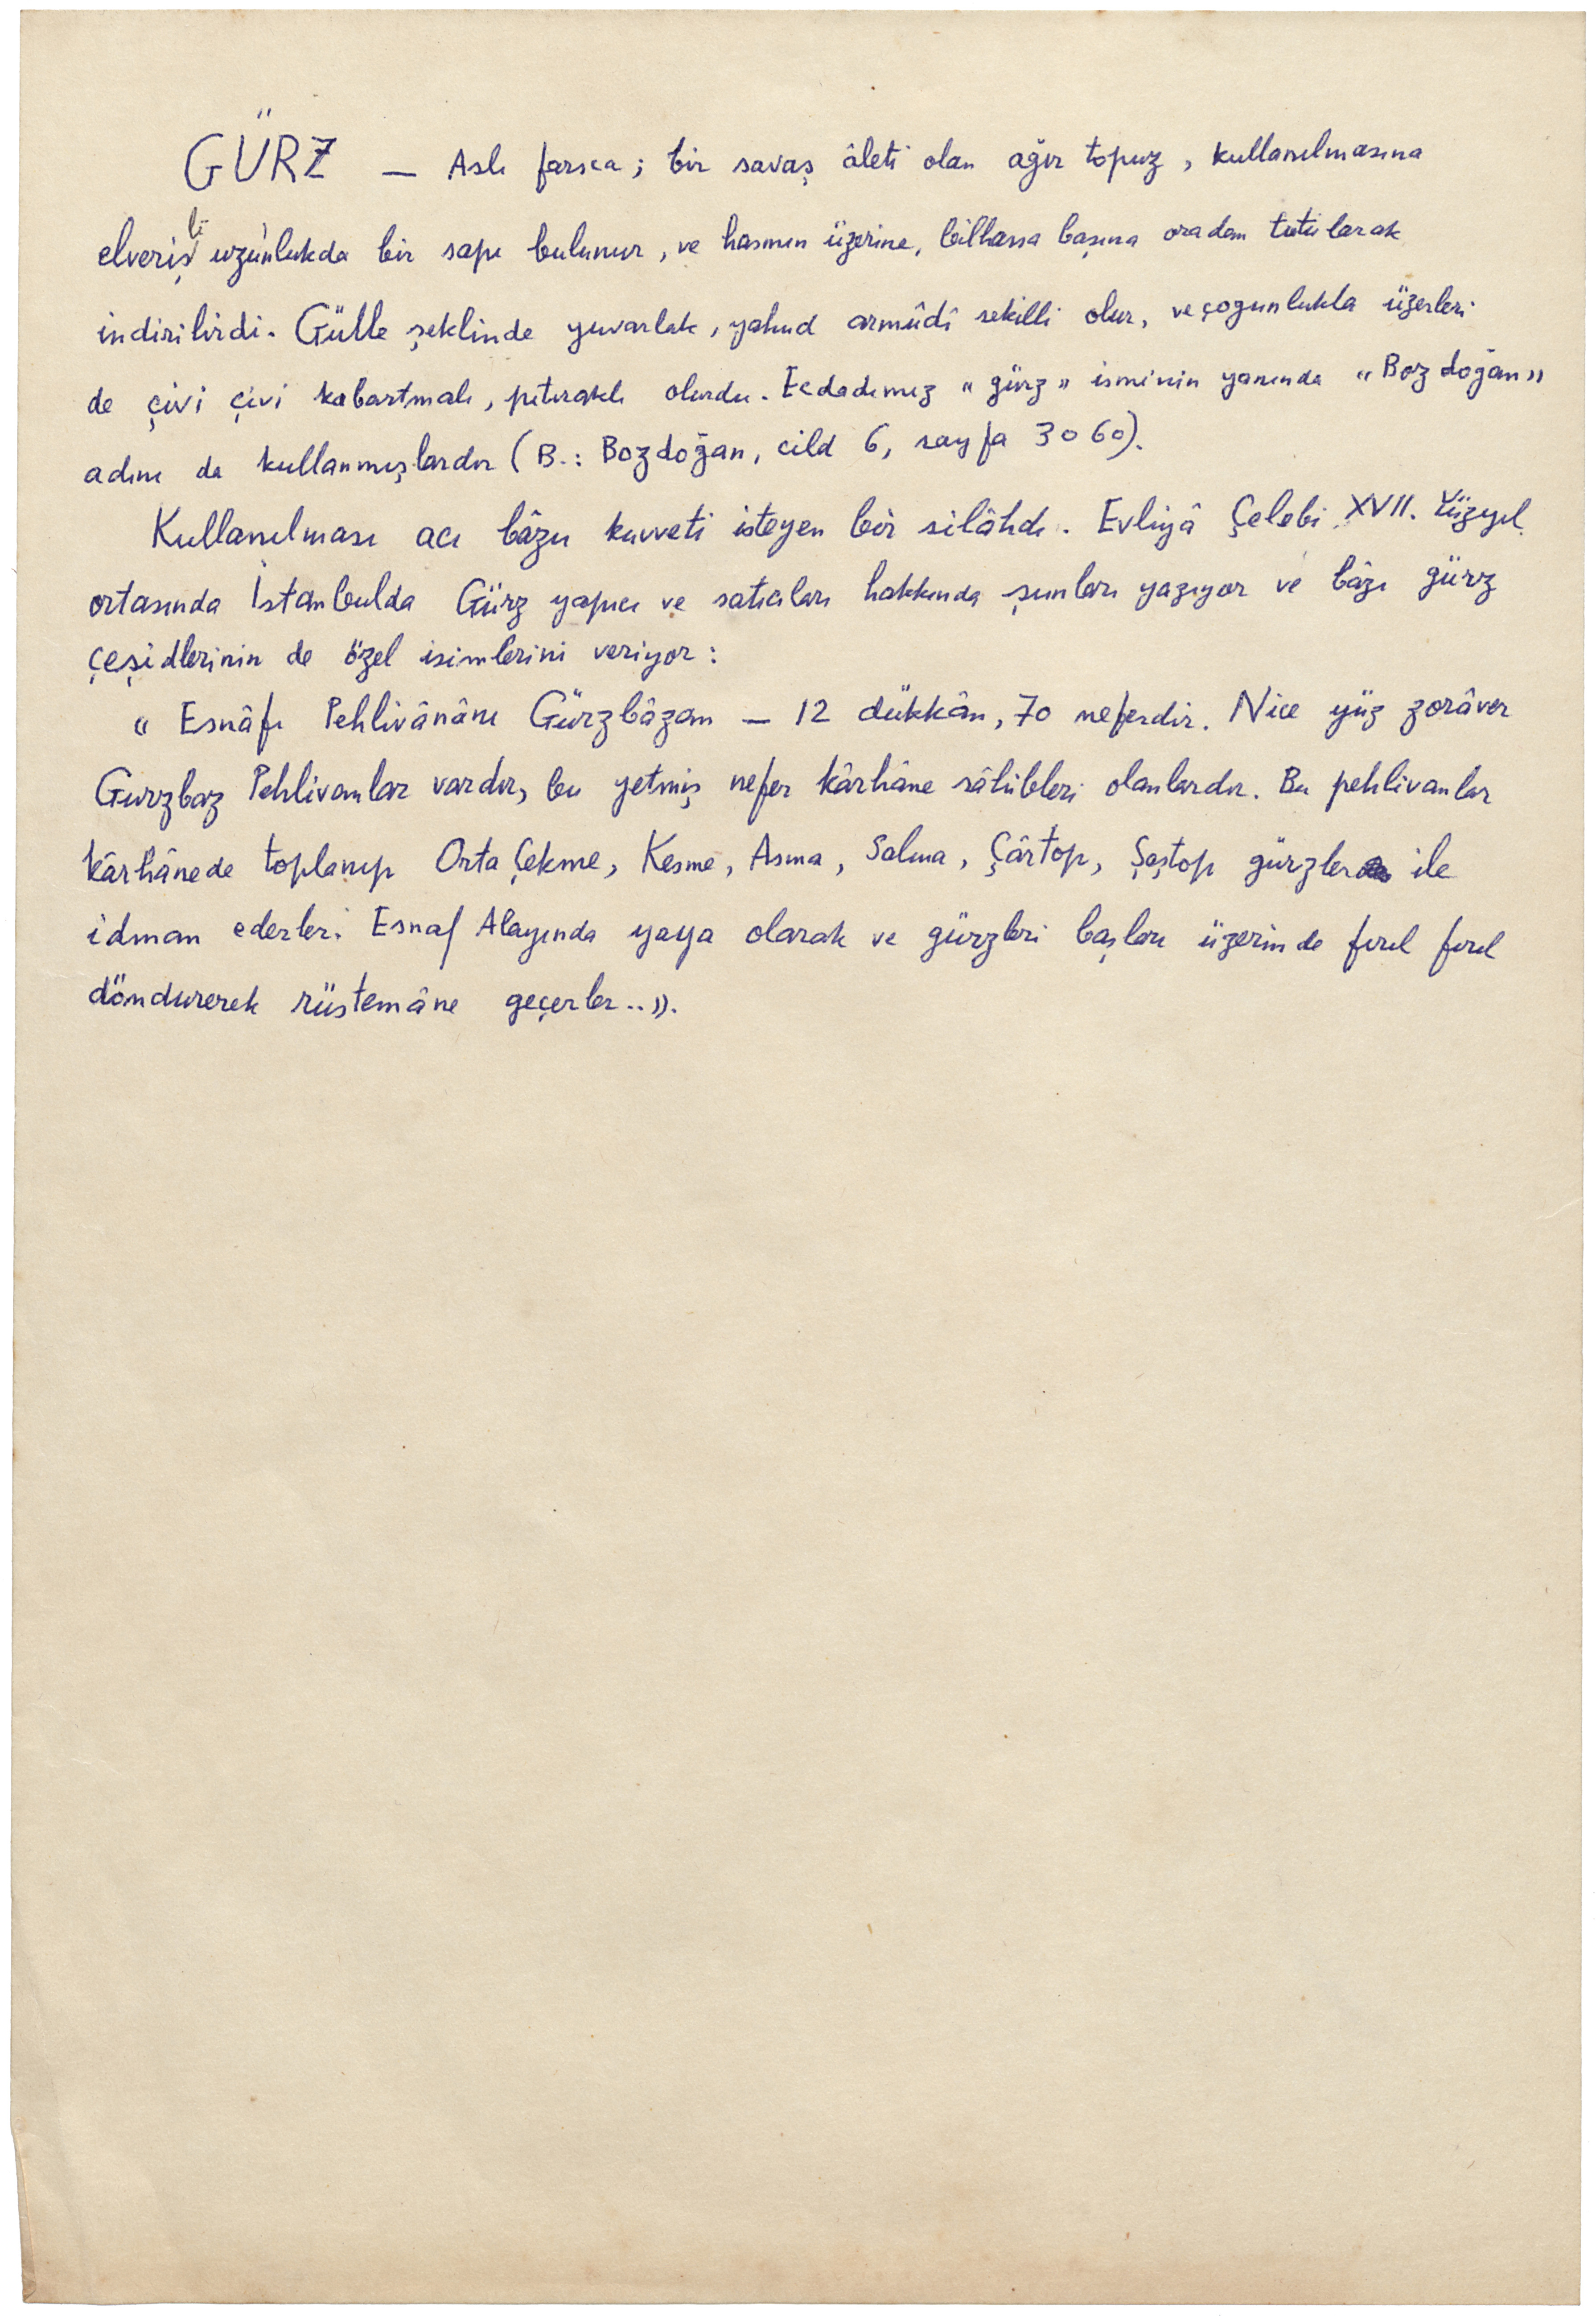 GÜRZ — Aslı farsca; bir savaş âleti olan ağır topuz, kullanılmasına
elverişli uzunlukda bir sapı bulunur, ve hasmın üzerine, bilhassa başına oradan tutularak
indirilirdi. Gülle şeklinde yuvarlak, yahud armûdî sekilli olur, ve çogunlukla üzerleri
de çivi çivi kabartmalı, pıtıraklı olurdu. Ecdadımız « gürz » isminin yanında « Bozdoğan »
adını da kullanmışlardır (B.: Bozdoğan, cild 6, sayfa 3060).
Kullanılması acı bâzu kuvveti isteyen bir silâhdı. Evliyâ Çelebi XVII. Yüzyıl
ortasında İstanbulda Gürz yapıcı ve satıcıları hakkında şunları yazıyor ve bâzı gürz
çeşidlerinin de özel isimlerini veriyor :
« Esnâfı Pehlivânânı Gürzbâzan — 12 dükkân, 70 neferdir. Nice yüz zorâver
Gurzbaz Pehlivanlar vardır, bu yetmiş nefer kârhâne sâhibleri olanlardır. Bu pehlivanlar
kârhânede toplanıp Orta Çekme, Kesme, Asma, Salma, Çârtop, Şeştop gürzler ile
idman ederler. Esnaf Alayında yaya olarak ve gürzleri başları üzerinde fırıl fırıl
döndurerek rüstemâne geçerler..».